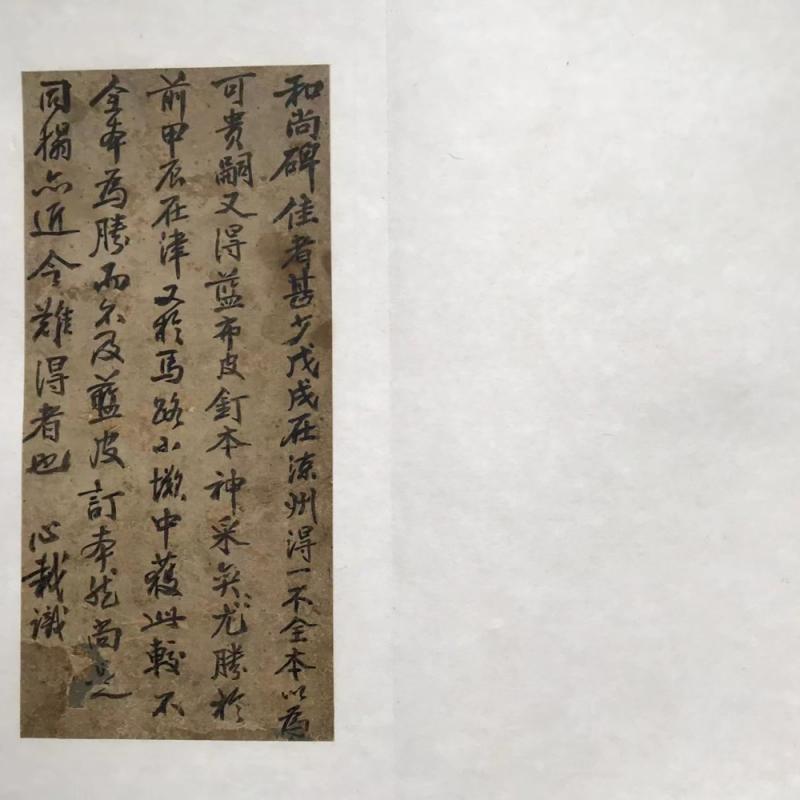 和尚碑佳者甚少戊戌在涼州得一不全本以為
可貴嗣又得藍布皮釘本神采奕尤勝於
前甲辰在津又於馬路小攤中獲此較不
全本為勝而不及藍皮訂本然尚是
同搨亦近今難得者也 心栽識